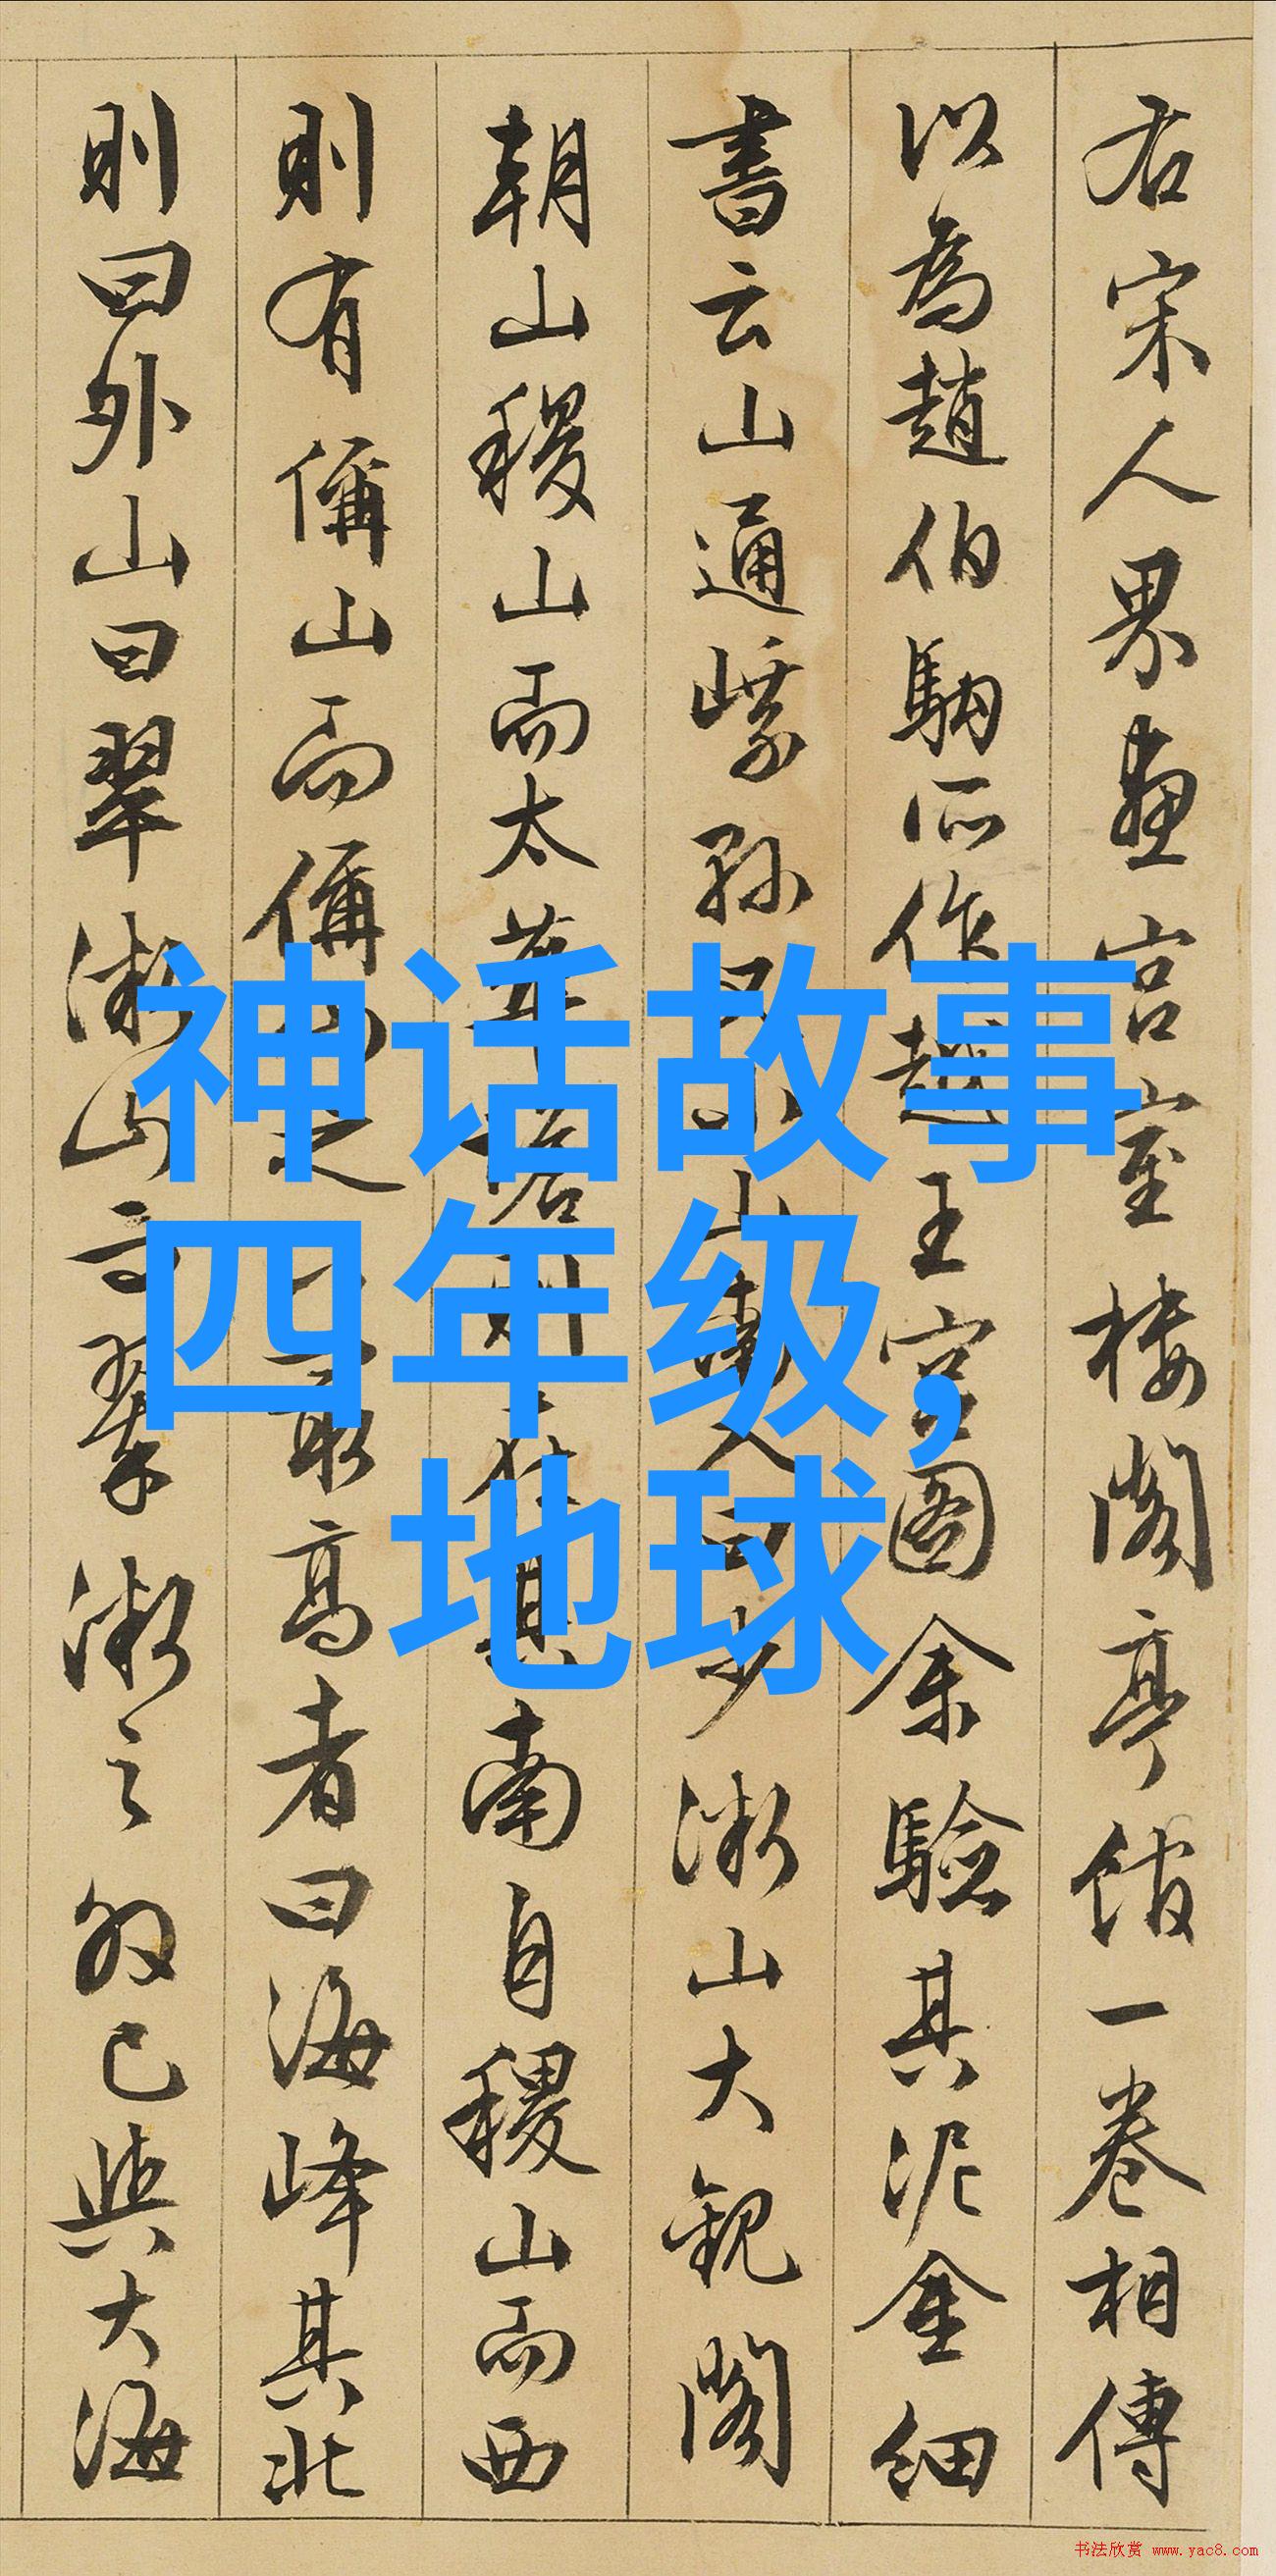 右宋人界畫宮室樓閣亭館一卷相傳
以為趙伯駒所作越王宮圖余驗其泥金細
書云山通 孫 山南入 少 山大觀閣
朝山稷山而太華 其南自稷山而西
則有偁山而偁山之最高者曰海峰其北
則曰外山曰翠 山 翠 之外已與大海
神话故事
四年级,
地球
书法欣赏 www.yac8.com